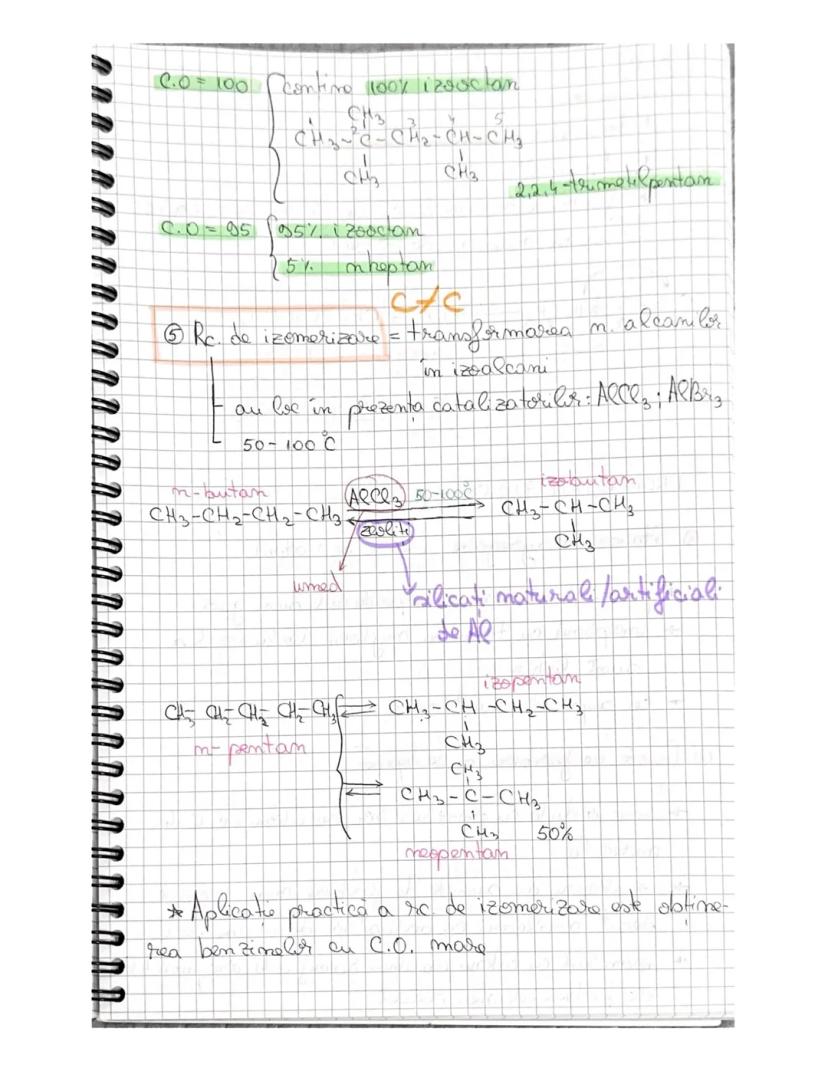 C.O = 100 { contine 100% izooctan
CH3
1 2 3 4 5
CH3-C-CH2-CH-CH3
CH3 CH3
2,2,4-trimetilpentan
C.O = 95 { 95% izooctan
5% nheptan
C+C
⑤ Rc. de izomerizare = transformarea n. alcanilor
în izoalcani
au loc în prezența catalizatorilor: AlCl3; AlBr3
50-100°C
n-butan izobutan
AlCl3 50-100°C
CH3-CH2-CH2-CH3 ⇄ CH3-CH-CH3
zeoliti CH3
umed
silicați naturali/artificiali
de Al
izopentan
CH3-CH2-CH2-CH2-CH3 ⇄ CH3-CH-CH2-CH3
n-pentan CH3
CH3
⇄ CH3-C-CH3
CH3 50%
neopentan
* Aplicație practică a rc. de izomerizare este obține-
rea benzinelor cu C.O. mare